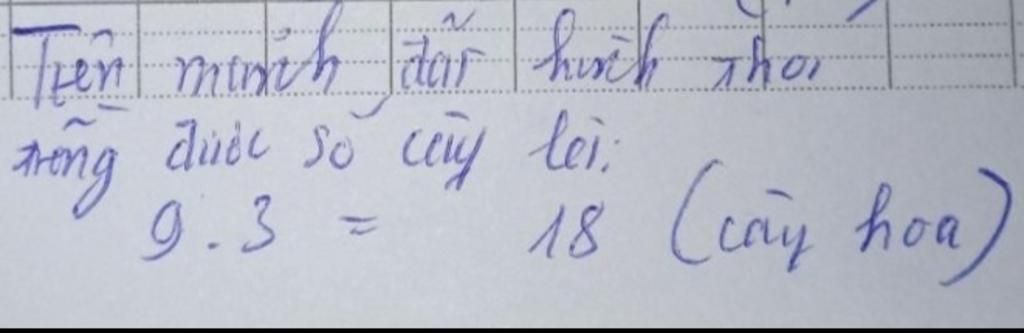 Trên mảnh đất hình thoi
trồng được số cây là:
9.3 = 18 (cây hoa)